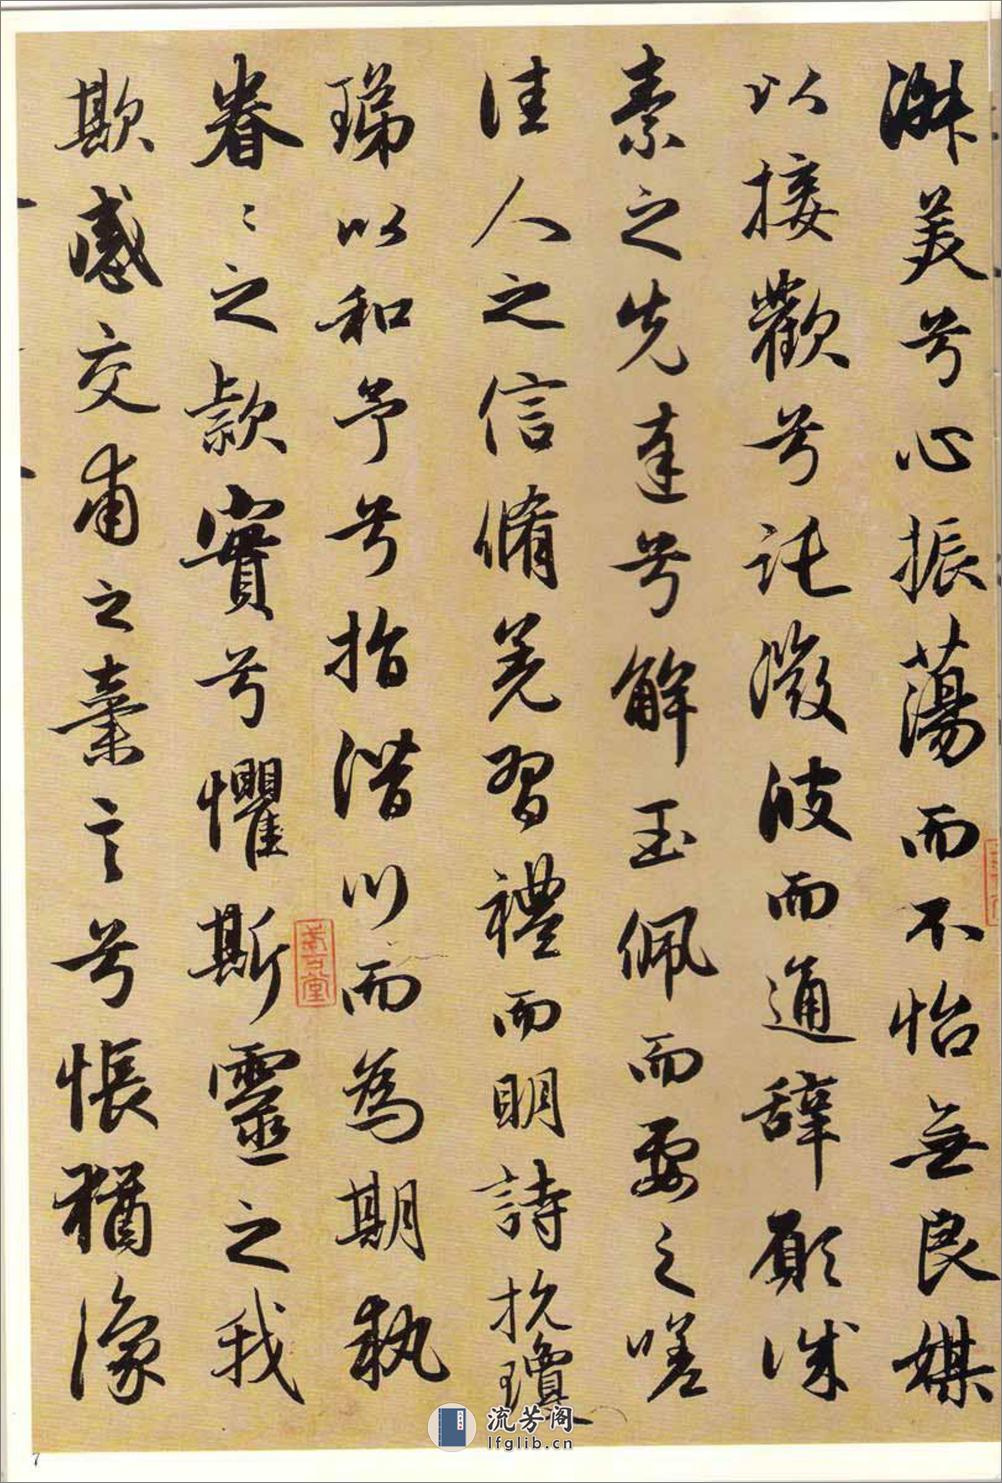 淑美兮心振蕩而不怡無良媒
以接歡兮託微波而通辭願誠
素之先達兮解玉佩而要之嗟
佳人之信脩羌習禮而明詩抗瓊
珶以和予兮指潛川而為期執
眷〻之款實兮懼斯靈之我
欺感交甫之棄言兮悵猶豫
流芳阁
lfglib.cn
7